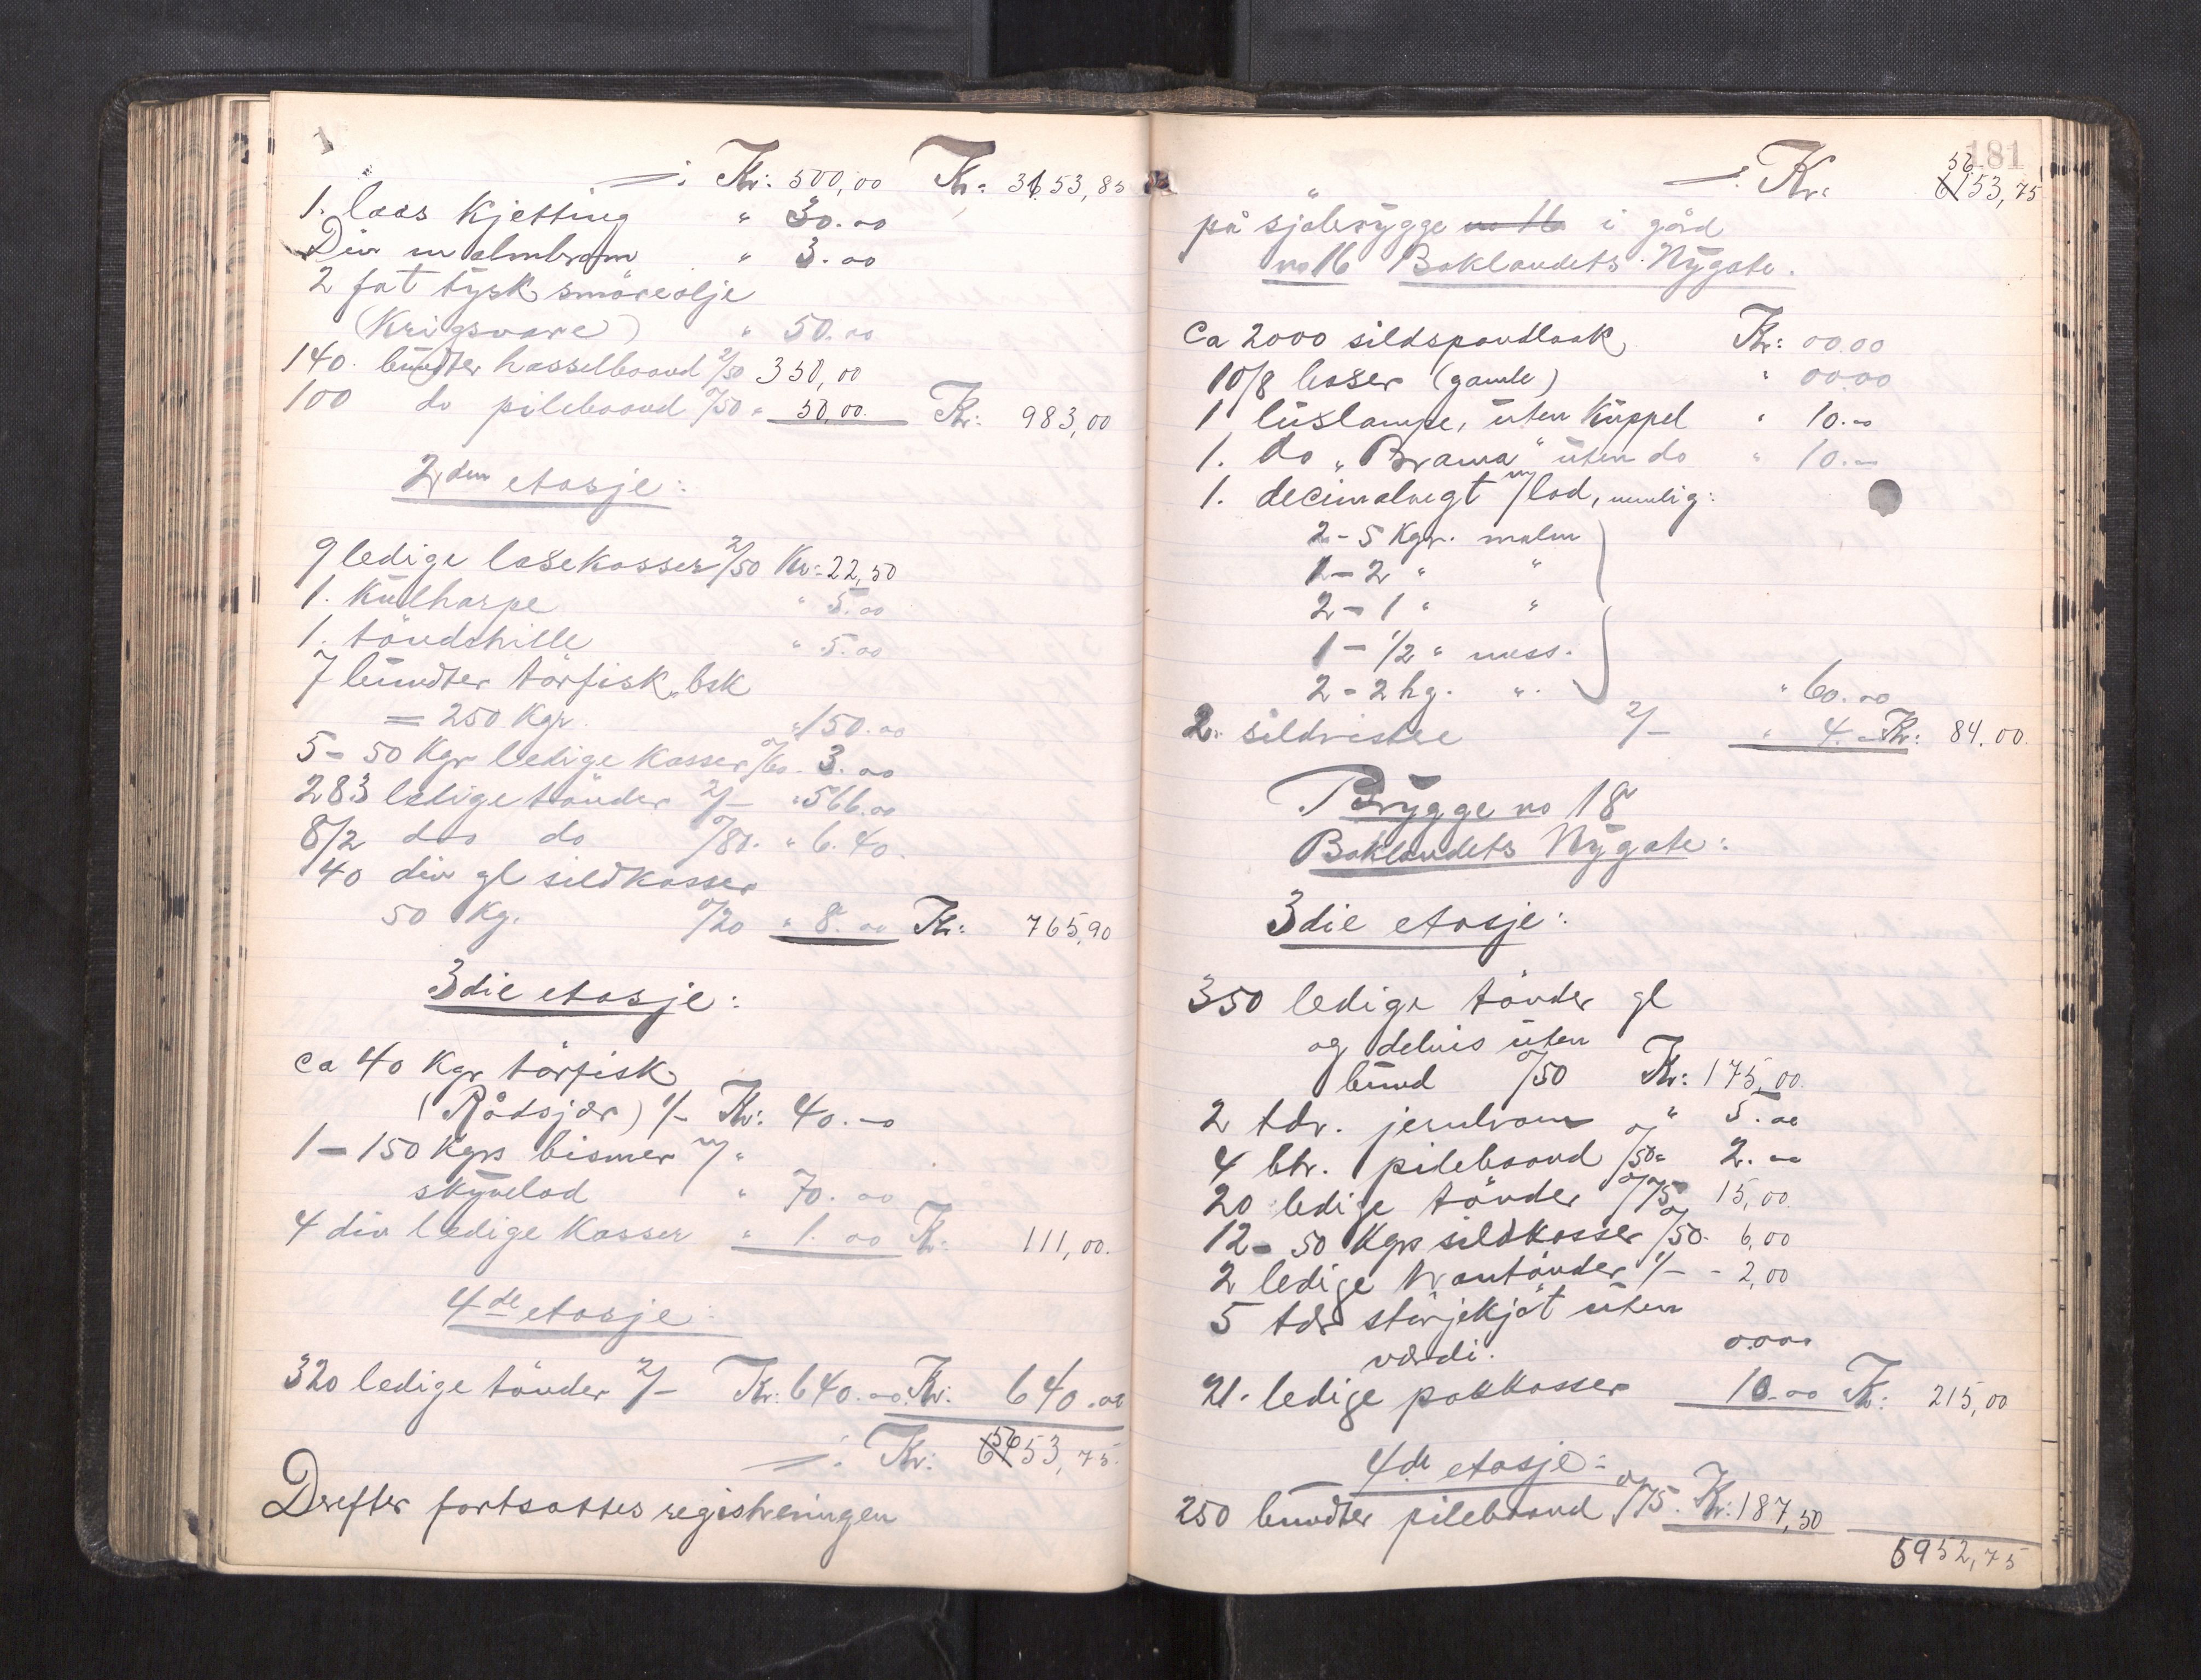 1
Kr: 500,00 Kr: 3153,85
1. laas Kjetting " 30.00
Div malmbrom " 3.00
2 fat tysk smöreolje
(Krigsvare) " 50.00
140. bundter hasselbaand 2/50 350,00
100 do pilebaand o/50 " 50,00. Kr: 983,00
2den etasje:
9 ledige laxekasser 2/50 Kr: 22,50
1. Kulharpe " 5.00
1. töndehille " 5.00
7 bundter törfisk, bsk
= 250 Kgr. " 150.00
5 - 50 Kgr ledige Kasser o/60. 3.00
283 ledige tönder 2/- " 566.00
8/2 do do o/80. " 6.40.
40 div gl sildkasser
50 Kg. o/20 " 8.00 Kr: 765,90
3die etasje:
ca 40 Kgr törfisk
(Rådsjær) 1/- Kr: 40.-
1 - 150 Kgrs bismer m/
skyvelod " 70.00
4 div ledige Kasser " 1.00 Kr: 111,00.
4de etasje:
320 ledige tönder 2/- Kr: 640.00. Kr: 640.00
Kr: 5653,75.
Derefter fortsattes registreringen
181
Kr: 5653,75
på sjöbrygge no 16 i gård
no 16 Baklandets Nygate.
Ca 2000 sildspandlaak Kr: 00.00
10/8 baser (gamle) " 00.00
1 luslampe, uten Kuppel " 10.-
1. do "Brama" uten do " 10.-
1. decimalvegt m/lod, nemlig:
2 - 5 Kgr. malm
1 - 2 " "
2 - 1 " "
1 - 1/2 " mess.
2 - 2 hg. ". " 60.00
2. sildrister 2/- " 4.- Kr: 84.00.
Brygge no 18
Baklandets Nygate:
3die etasje:
350 ledige tönder gl
og delvis uten
bund o/50 Kr: 175,00.
2 tdr. jernbrom " 5.00
4 btr. pilebaand o/50 " 2.00
20 ledige tönder o/75 15,00.
12 - 50 Kgrs sildkasser o/50. 6,00
2 ledige trantönder 1/- - 2,00
5 tdr störjekjöt uten
værdi. 0.00
21. ledige pakkasser 10.00 Kr: 215,00
4de etasje:
250 bundter pilebaand o/75. Kr: 187,50
5952,75